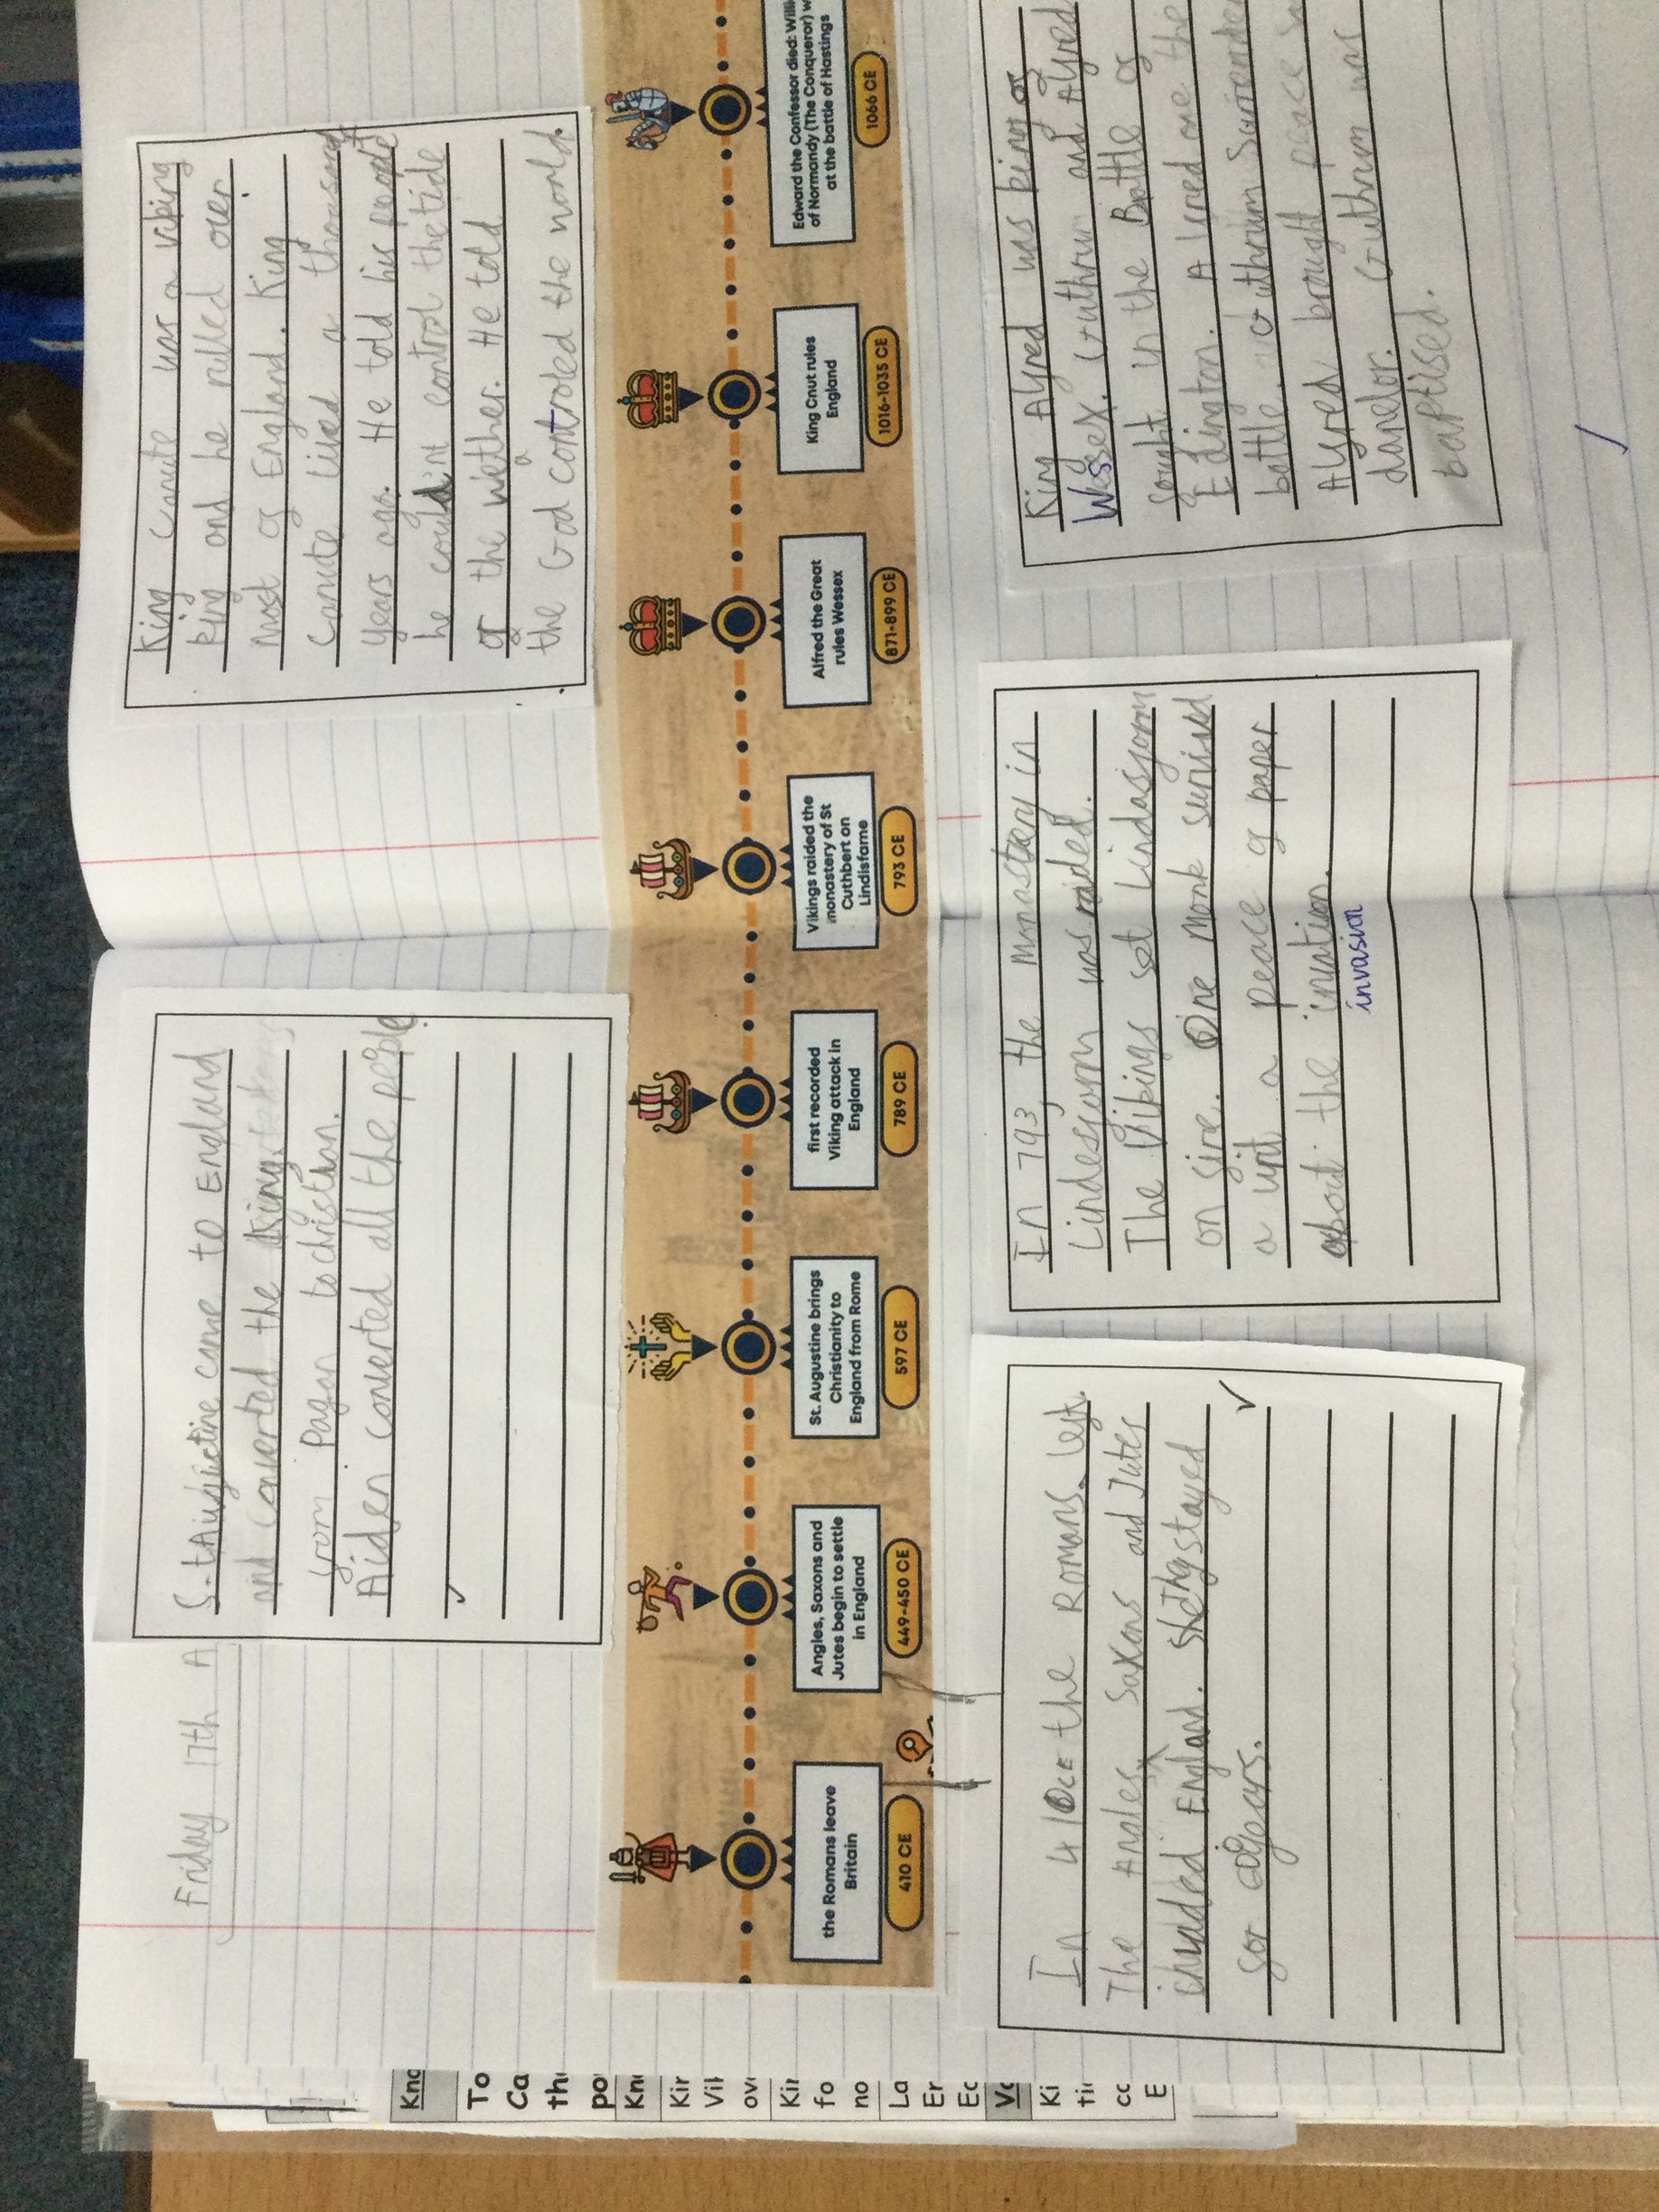 Friday 17th A
S.t Augustine came to England
and converted the king
from Pagan to christian.
Aiden converted all the people.
King Canute was a viking
king and he rulled over
most of England. King
Canute lived a thousand
years ago. He told his people
he could int control the tide
or the wether. He told
a
the God controled the world.
the Romans leave
Britain
410 CE
Angles, Saxons and
Jutes begin to settle
in England
449-450 CE
St. Augustine brings
Christianity to
England from Rome
597 CE
first recorded
Viking attack in
England
789 CE
Vikings raided the
monastery of St
Cuthbert on
Lindisfarne
793 CE
Alfred the Great
rules Wessex
871-899 CE
King Cnut rules
England
1016-1035 CE
Edward the Confessor died: Willi
of Normandy (The Conqueror) w
at the battle of Hastings
1066 CE
In 410CE the Romans left.
The Anglex, Saxons and Jutes
England. stayed
for years.
In 793 the monastery in
Lindesfarn was raided.
The Vikings set Lindasfarn
on fire. One monk surived
a writ a peace of paper
about the invation.
invasion
King Alfred was king of
Wessex. Guthrum and Alfred
fought in the Battle of
Edington. Alfred one the
battle. Guthrum Surrender
Alfred brought peace
danelor. Guthrum was
baptised.
Kno
To
Ca
the
po
Kno
Kir
Vik
ove
Kir
fo
no
La
Er
Ec
Vo
Ki
ti
co
E